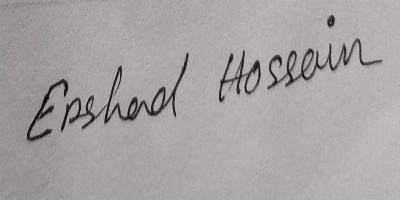 Ershad Hossain